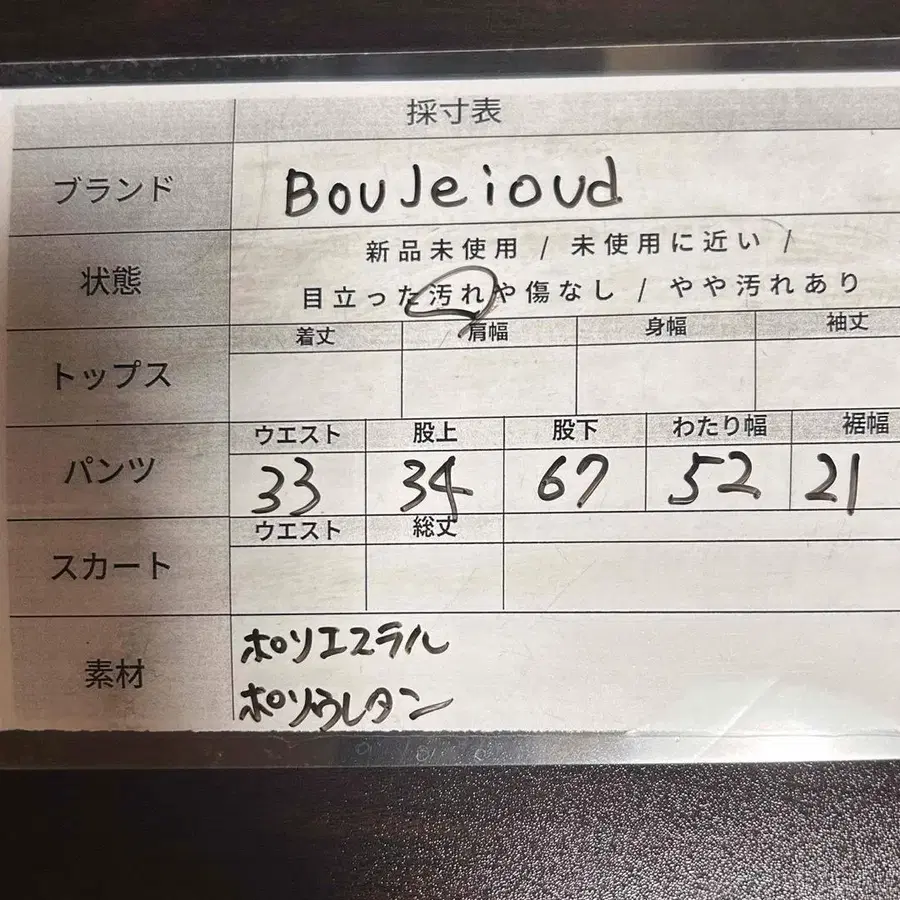 採寸表
ブランド BouJeioud
状態 新品未使用 / 未使用に近い /
目立った汚れや傷なし / やや汚れあり
トップス 着丈 肩幅 身幅 袖丈
パンツ ウエスト 股上 股下 わたり幅 裾幅
33 34 67 52 21
スカート ウエスト 総丈
素材 ポリエステル
ポリウレタン